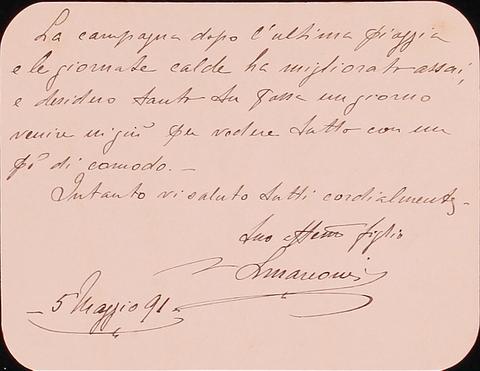 La campagna dopo l'ultima pioggia
e le giornate calde ha migliorato assai,
e desidero tanto tu possa un giorno
venire in giù per vedere tutto con un
pò di comodo. —
Intanto vi saluto tutti cordialmente —
Suo affemo figlio
GMarconi
— 5 Maggio 91. —